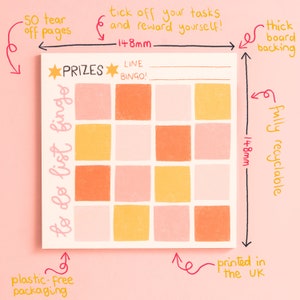 50 tear
off pages
tick off your tasks
and reward yourself!
thick
board
backing
148mm
PRIZES
LINE
BINGO!
to do list bingo
fully recyclable
148mm
plastic-free
packaging
printed in
the UK